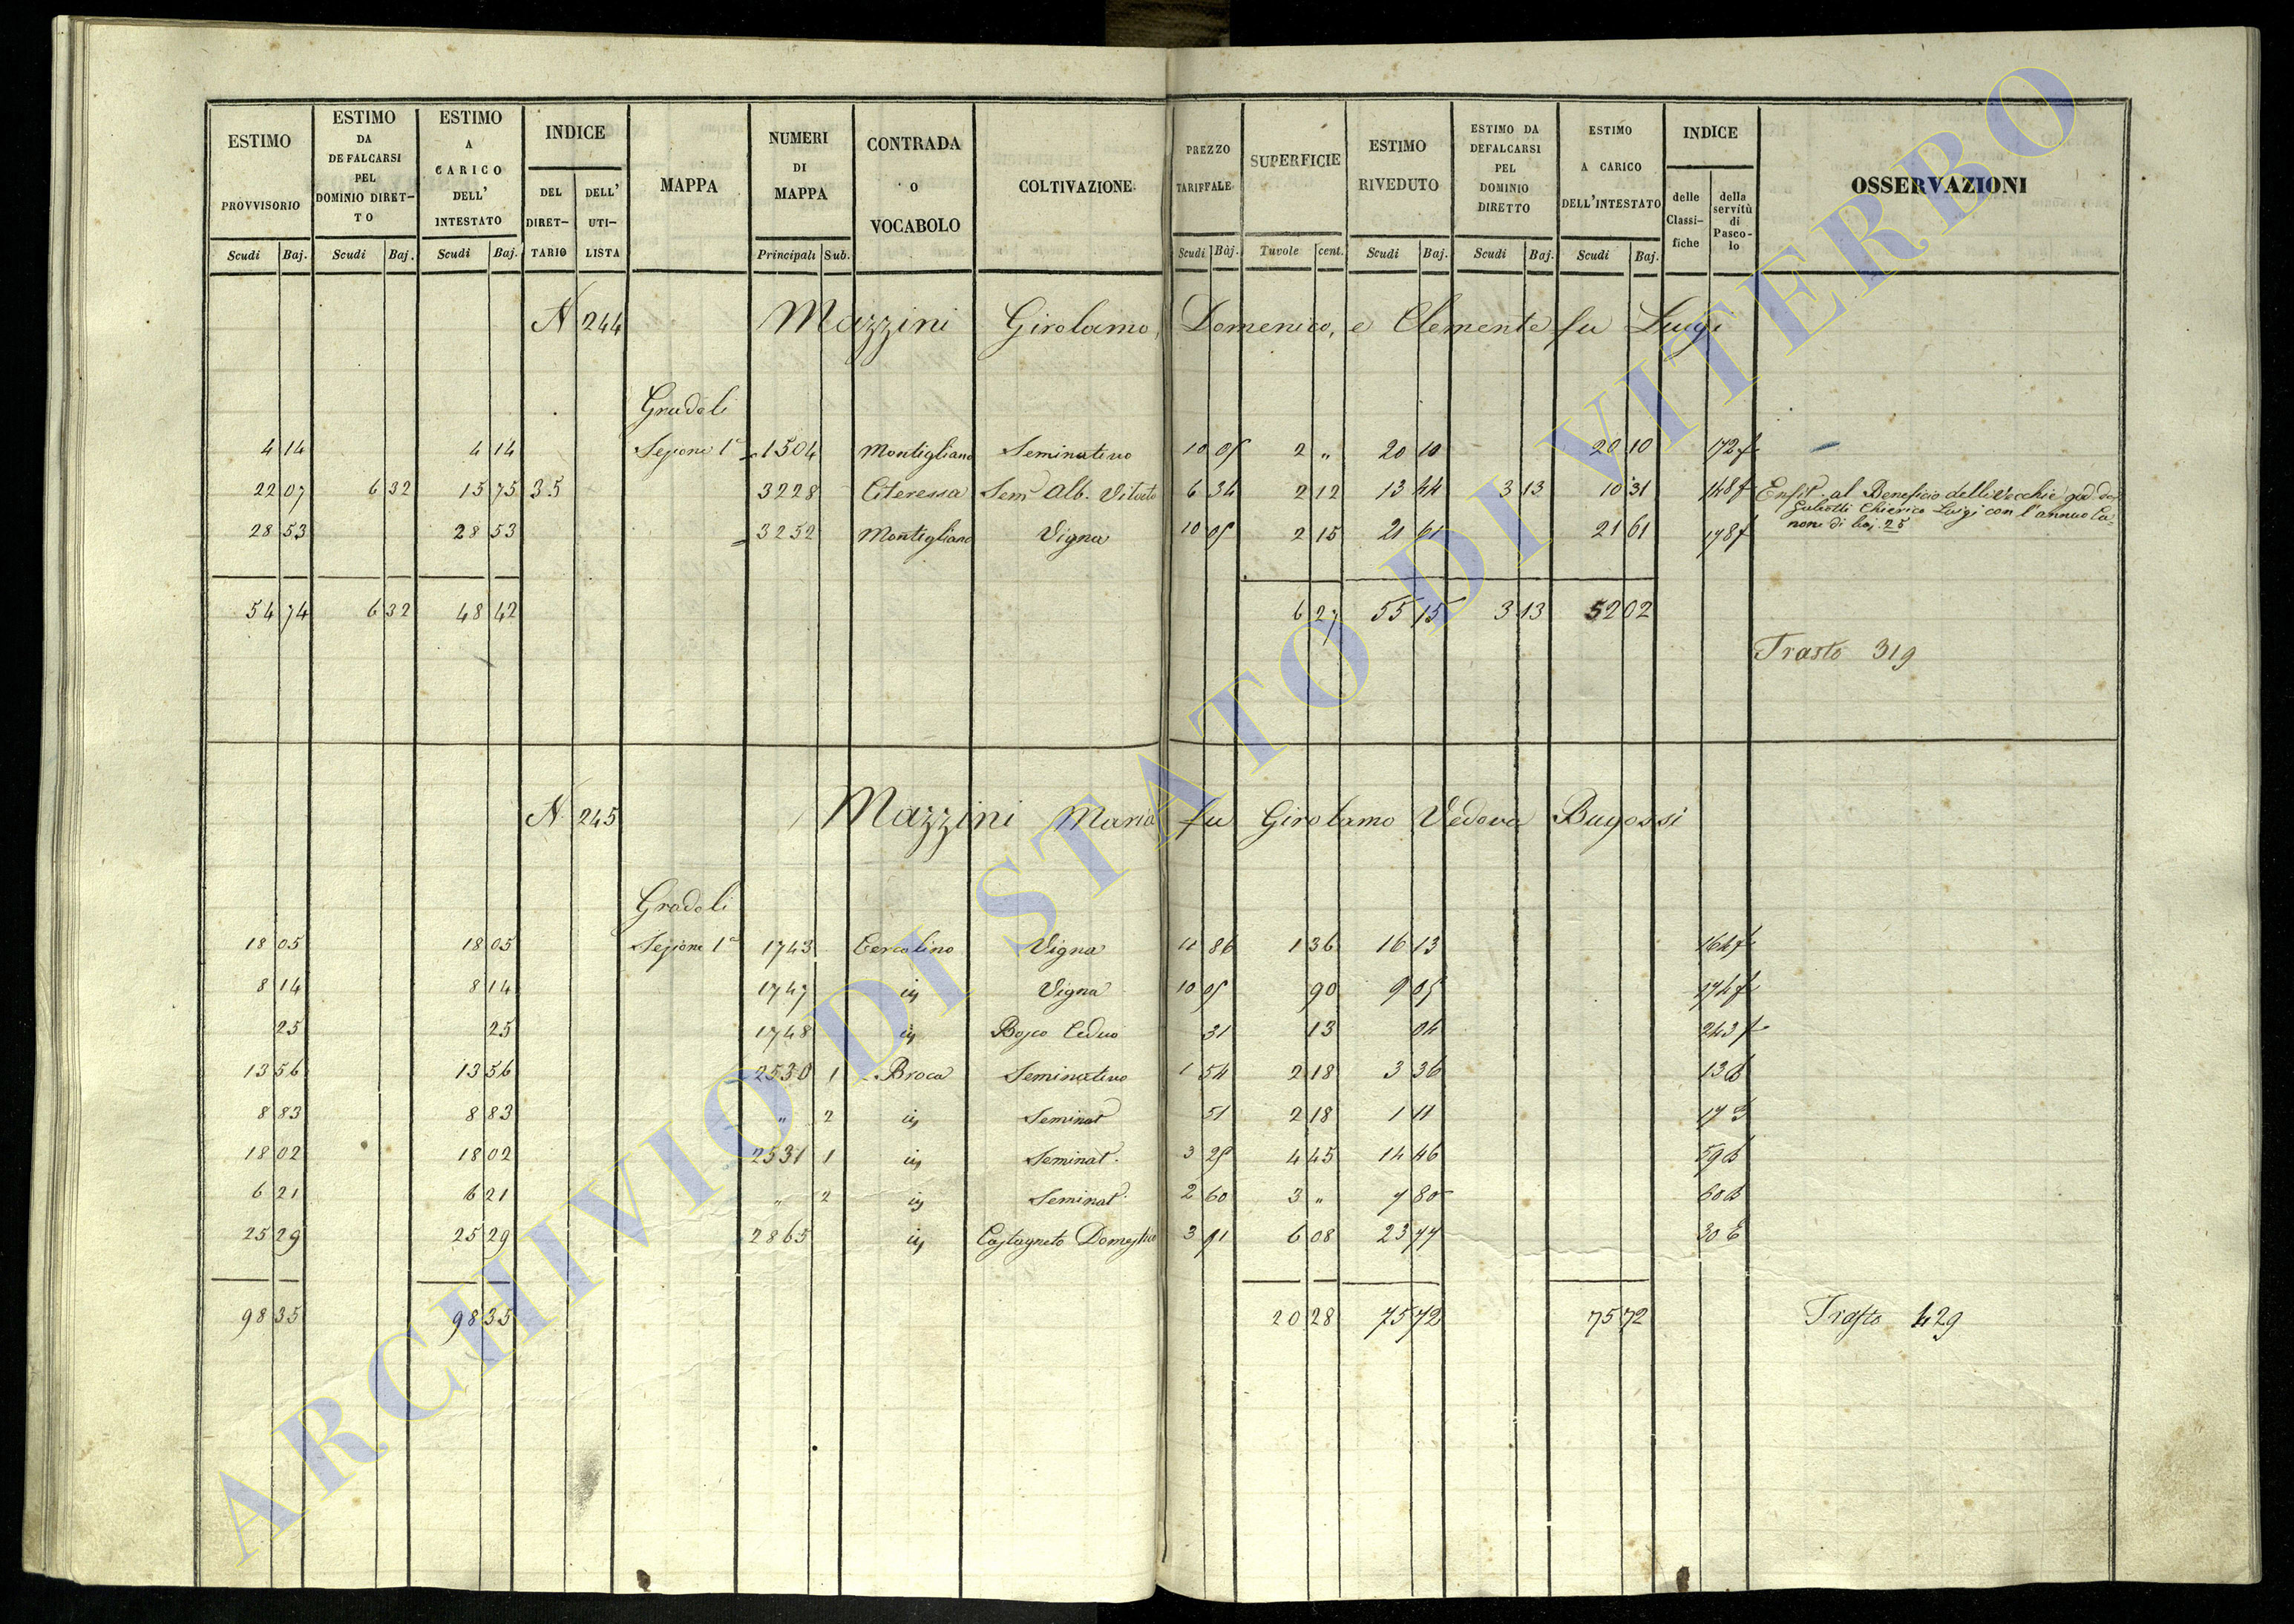 ESTIMO PROVVISORIO | ESTIMO DA DEFALCARSI PEL DOMINIO DIRETTO | ESTIMO A CARICO DELL' INTESTATO | INDICE | MAPPA | NUMERI DI MAPPA | CONTRADA O VOCABOLO | COLTIVAZIONE | PREZZO TARIFFALE | SUPERFICIE | ESTIMO RIVEDUTO | ESTIMO DA DEFALCARSI PEL DOMINIO DIRETTO | ESTIMO A CARICO DELL'INTESTATO | INDICE | OSSERVAZIONI
DEL DIRETTARIO | DELL' UTILISTA | delle Classifiche | della servitù di Pascolo
Scudi | Baj. | Scudi | Baj. | Scudi | Baj. | Principali | Sub. | Scudi | Baj. | Tavole | cent. | Scudi | Baj. | Scudi | Baj. | Scudi | Baj.
N 244 Mazzini Girolamo, Domenico, e Clemente fu Luigi
Gradoli
4 14 | 4 14 | Sezione 1a | 1504 | Montigliano | Seminativo | 10 05 | 2 " | 20 10 | 20 10 | 172 f | –
22 07 | 6 32 | 15 75 | 35 | 3228 | Citeressa | Sem Alb. Vitato | 6 34 | 2 12 | 13 44 | 3 13 | 10 31 | 148 f | Enfit. al Beneficio delle Vecchie
Chierico Luigi con l'annuo Ca-
28 53 | 28 53 | 3252 | Montigliano | Vigna | 10 05 | 2 15 | 21 61 | 21 61 | 178 f | none di baj. 25
54 74 | 6 32 | 48 42 | 6 27 | 55 15 | 3 13 | 52 02
Trasto 319
N. 245 Mazzini Maria fu Girolamo Vedova Bugossi
Gradoli
18 05 | 18 05 | Sezione 1a | 1743 | Cercolino | Vigna | 11 86 | 1 36 | 16 13 | 164 f
8 14 | 8 14 | 1747 | iy | Vigna | 10 05 | 90 | 9 05 | 174 f
25 | 25 | 1748 | iy | Bosco Ceduo | 31 | 13 | 04 | 243 f
13 56 | 13 56 | 2530 | 1 | Broca | Seminativo | 1 54 | 2 18 | 3 36 | 13 B
8 83 | 8 83 | " | 2 | iy | Seminat | 51 | 2 18 | 1 11 | 17
18 02 | 18 02 | 2531 | 1 | iy | Seminat. | 3 25 | 4 45 | 14 46 | 59 B
6 21 | 6 21 | " | 2 | iy | Seminat. | 2 60 | 3 " | 7 80 | 60 B
25 29 | 25 29 | 2865 | iy | Castagneto Domestico | 3 91 | 6 08 | 23 77 | 30 E
98 35 | 98 35 | 20 28 | 75 72 | 75 72 | Trasto 429
ARCHIVIO DI STATO DI VITERBO